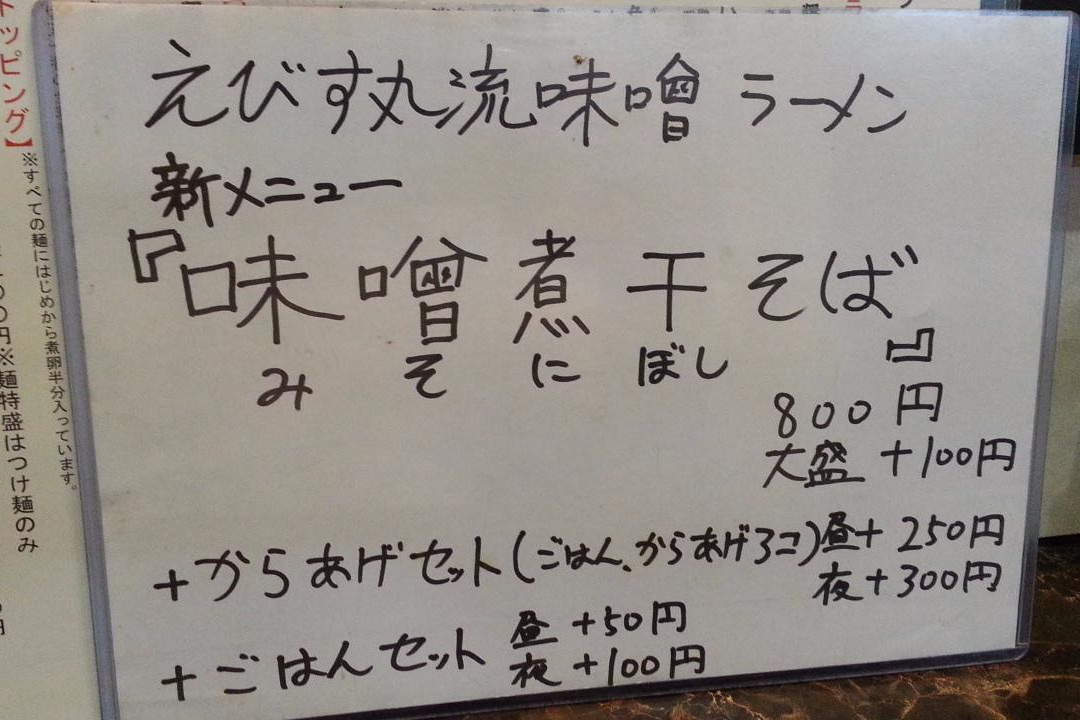 えびす丸流味噌ラーメン
新メニュー
『味噌煮干そば』
みそにぼし
800円
大盛 +100円
+からあげセット(ごはん、からあげ3コ)昼+250円
夜+300円
+ごはんセット 昼 +50円
夜 +100円
トッピング】
※すべての麺にはじめから煮卵半分入っています。
00円※麺特盛はつけ麺のみ